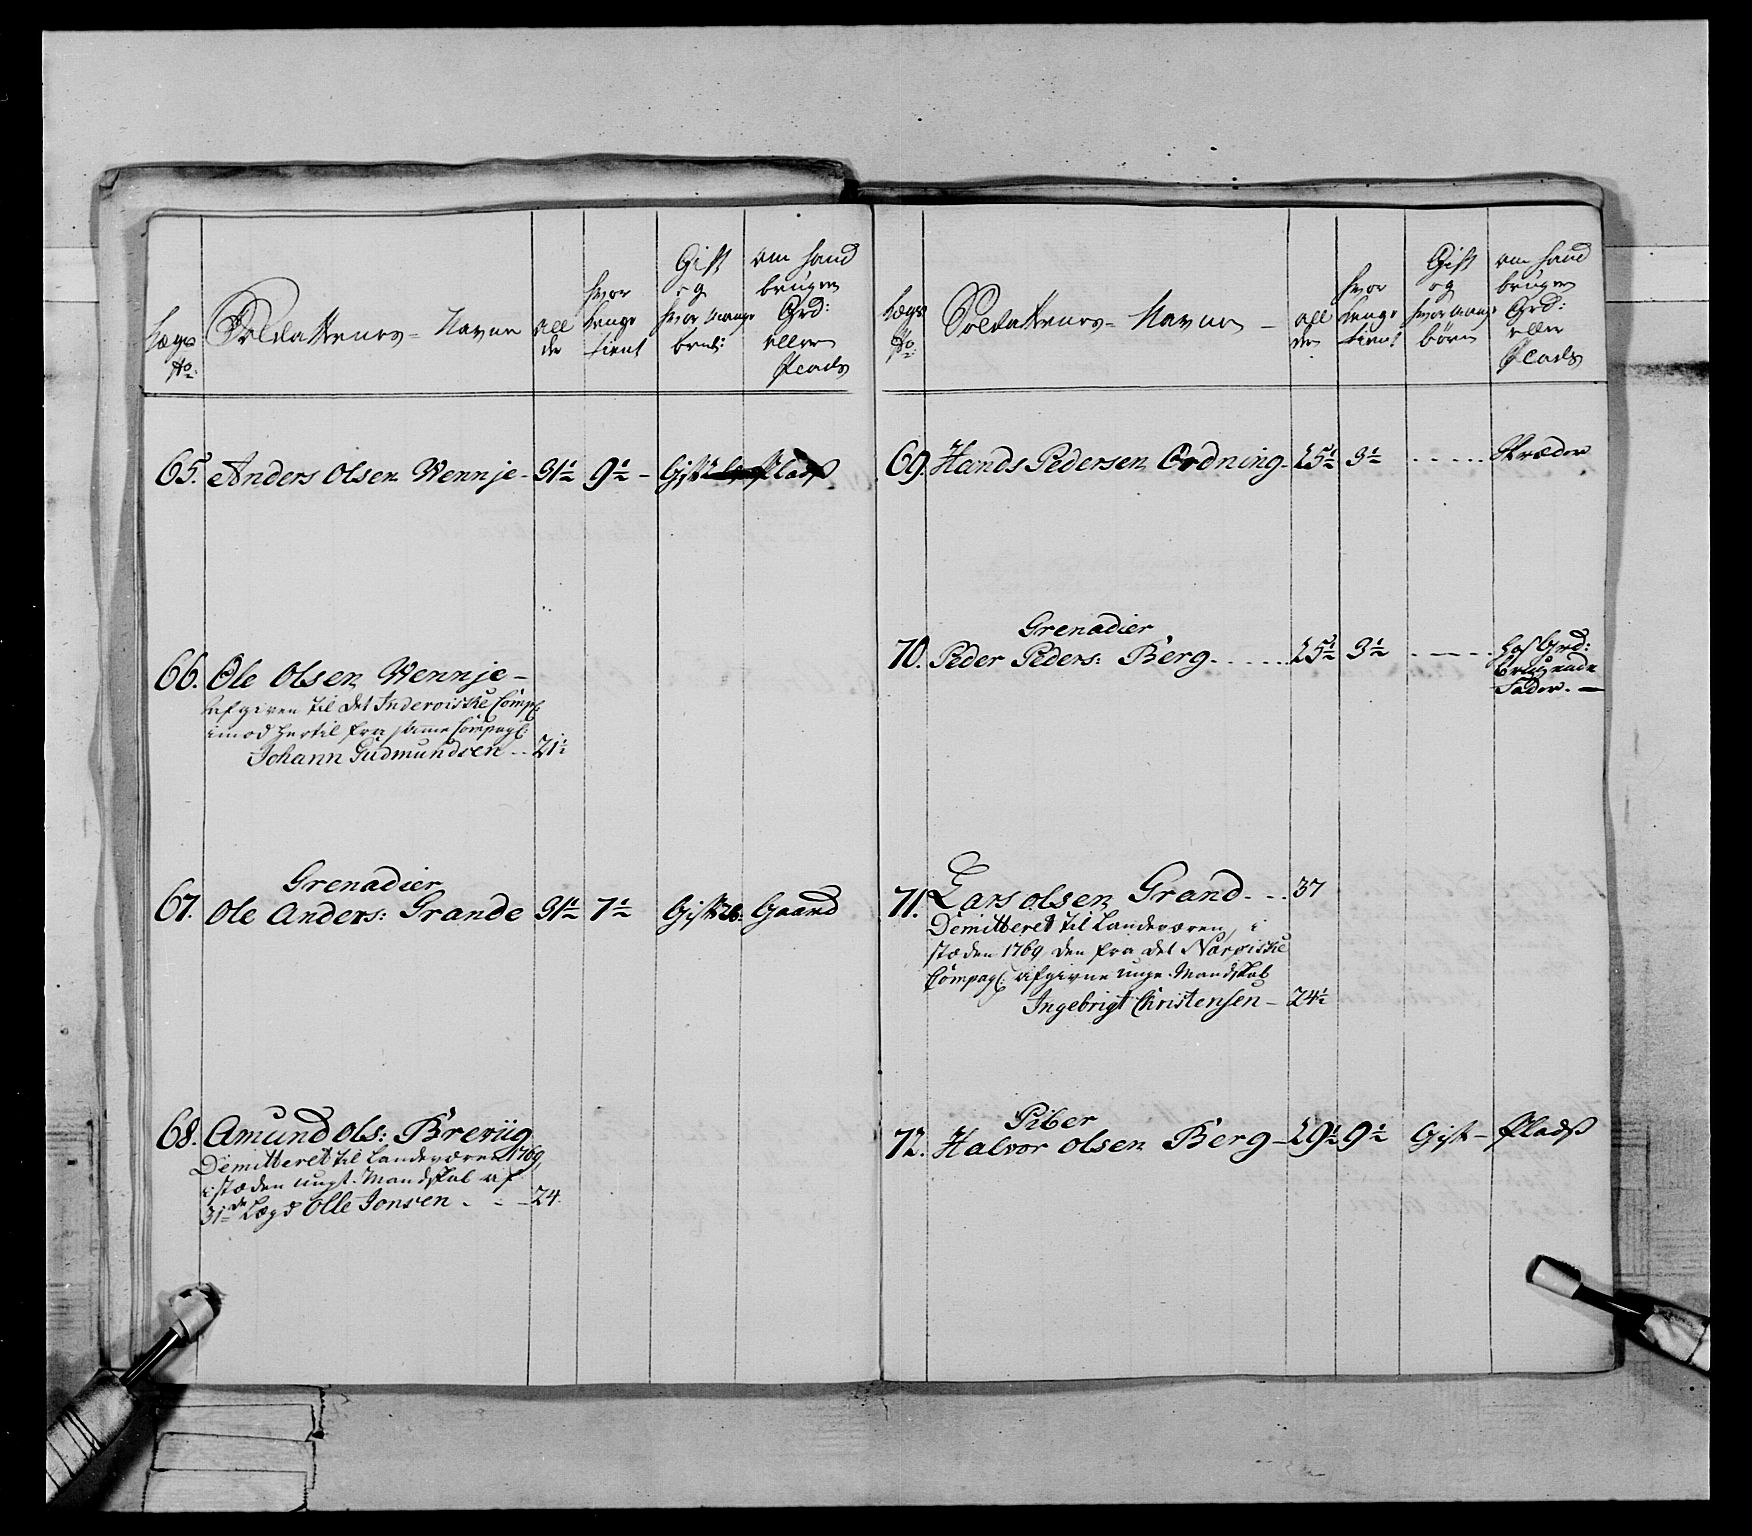 Lægs No:
Soldatternes Navne
All der
hvor lenge tient
Gift og hvor mange børn:
om hand bruger Grd: eller Plads
65. Anders Olsen Wennje - 31½ 9½ - Gift Plads
66. Ole Olsen Wennje -
Afgiven til det Inderoiske Comp:
imod hertil fra samme Compagl:
Johann Gudmundsen .. 21½
Grenadier
67. Ole Anders: Grande 31½ 7½ Gift 2b: Gaard
68. Amund Ols: Breviig
Demitteret til Landeværen 1769,
i stæden ungt Mandskab af
31de Lægd Olle Jonsen . - - 24.
Lægs No:
Soldatternes - Navne -
All der
hvor lenge tient
Gift og hvor mange børn
om hand bruger Grd: eller Plads
69. Hands Pedersen Ordning - 25½ 3½ ..... Skræder
Grenadier
70. Peder Peders: Berg ..... 25½ 3½ ..... hos Grd:
brugende
Fader. -
71. Lars Olsen Grand - .. 37
Demitteret til Landeværen, i
stæden 1769 den fra det Narøiske
Compagl: afgivne unge Mandskab
Ingebrigt Christensen - 24½
Piber
72. Halvor Olsen Berg - 29½ 9½ Gift - Plads